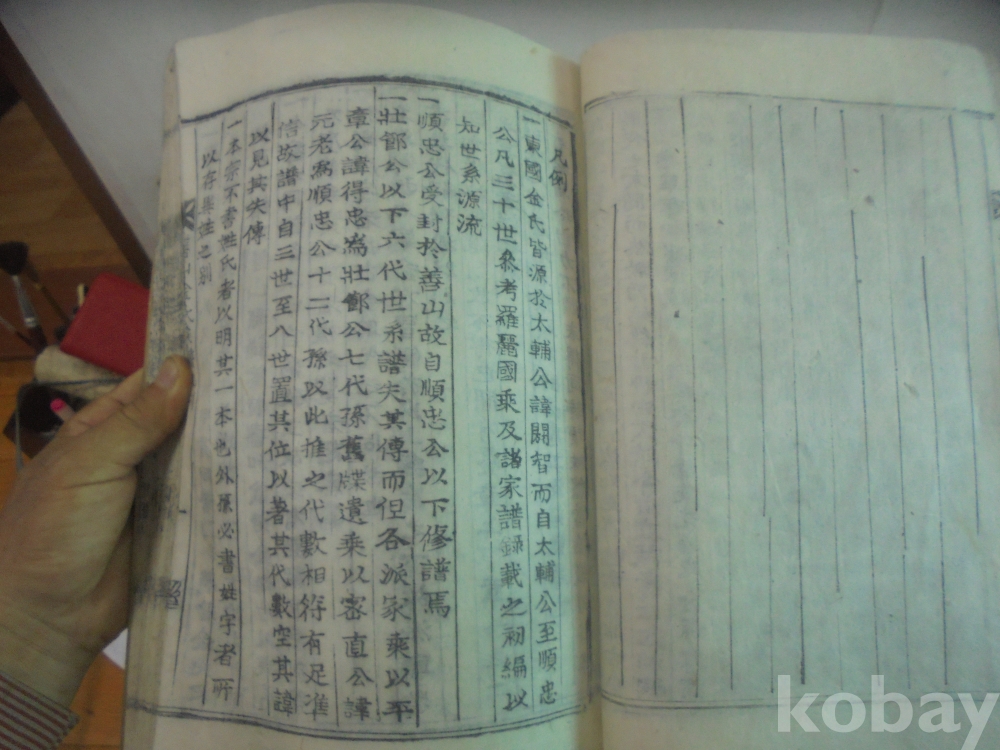 凡例
一東國金氏皆源於太輔公諱閼智而自太輔公至順忠
公凡三十世叅考羅麗國乘及諸家譜錄載之初編以
知世系源流
一順忠公受封於善山故自順忠公以下修譜焉
一壯節公以下六代世系譜失其傳而但各派家乘以平
章公諱得忠爲壯節公七代孫舊牒遺乘以密直公諱
元老爲順忠公十二代孫以此推之代數相符有足准
信故譜中自三世至八世置其位以著其代數空其諱
以見其失傳
一本宗不書姓氏者以明其一本也外孫必書姓字者所
以存異姓之別
kobay